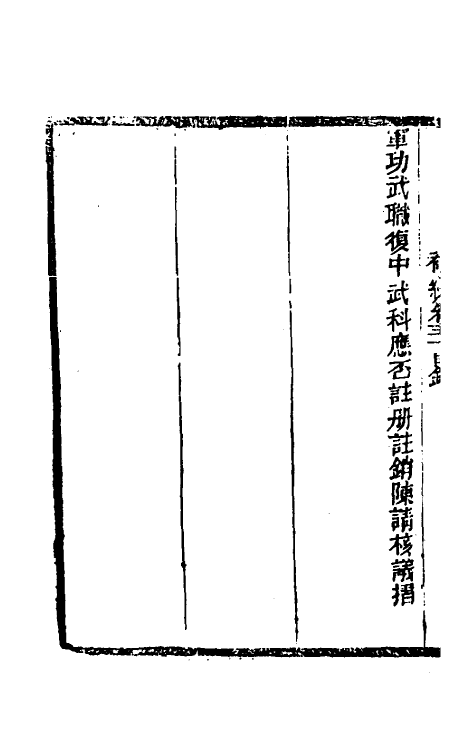 軍功武職復中武科應否註册註銷陳請核議摺
卷三目錄